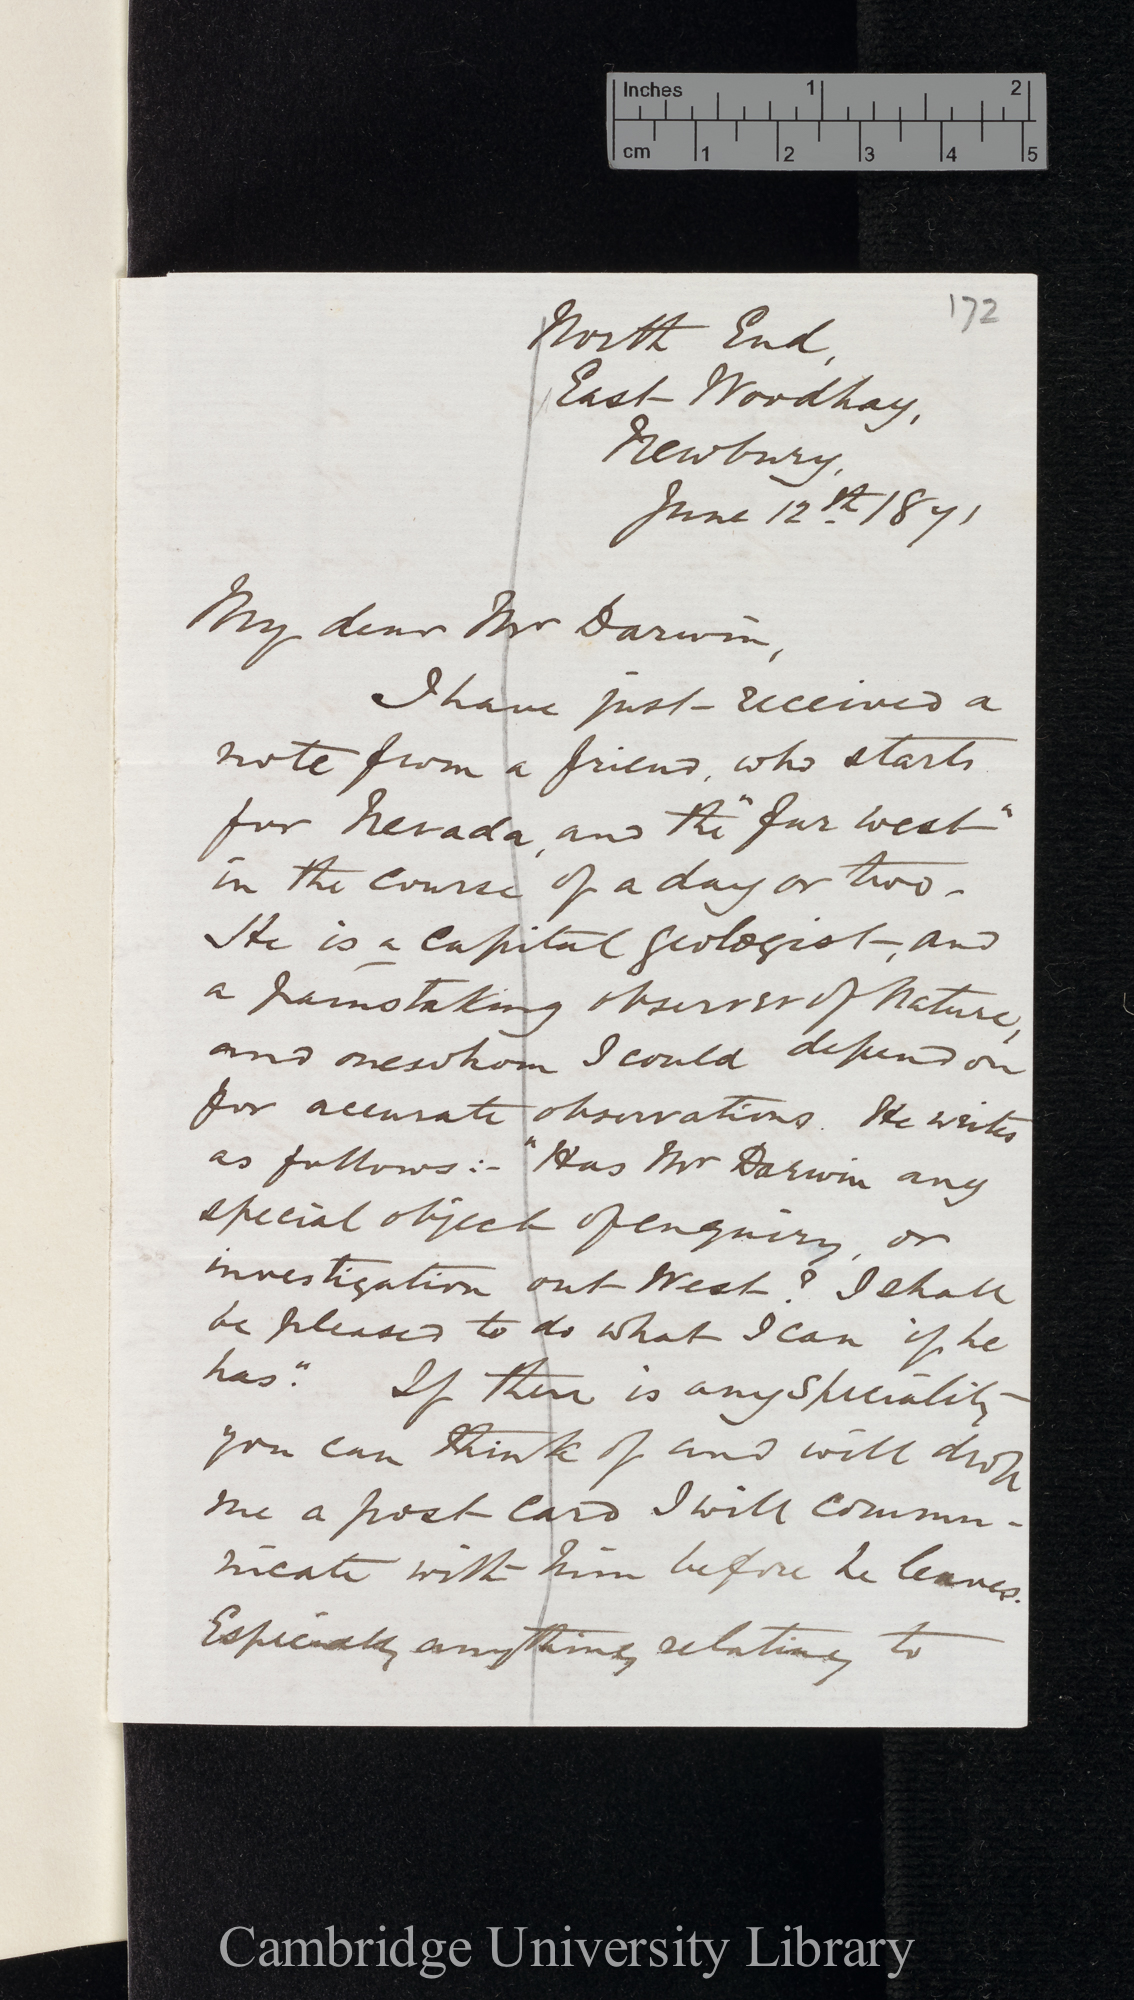 Inches 1 2
cm 1 2 3 4 5
172
North End,
East Woodhay,
Newbury,
June 12th. 1871
My dear Mr Darwin,
I have just received a
note from a friend, who starts
for Nevada, and the "far west"
in the course of a day or two.
He is a capital geologist, and
a painstaking observer of Nature,
and one whom I could depend on
for accurate observations. He writes
as follows:- "Has Mr Darwin any
special object of enquiry, or
investigation out West? I shall
be pleased to do what I can if he
has". If there is any speciality
you can think of and will drop
me a post card I will commu-
nicate with him before he leaves.
Especially anything relating to
Cambridge University Library